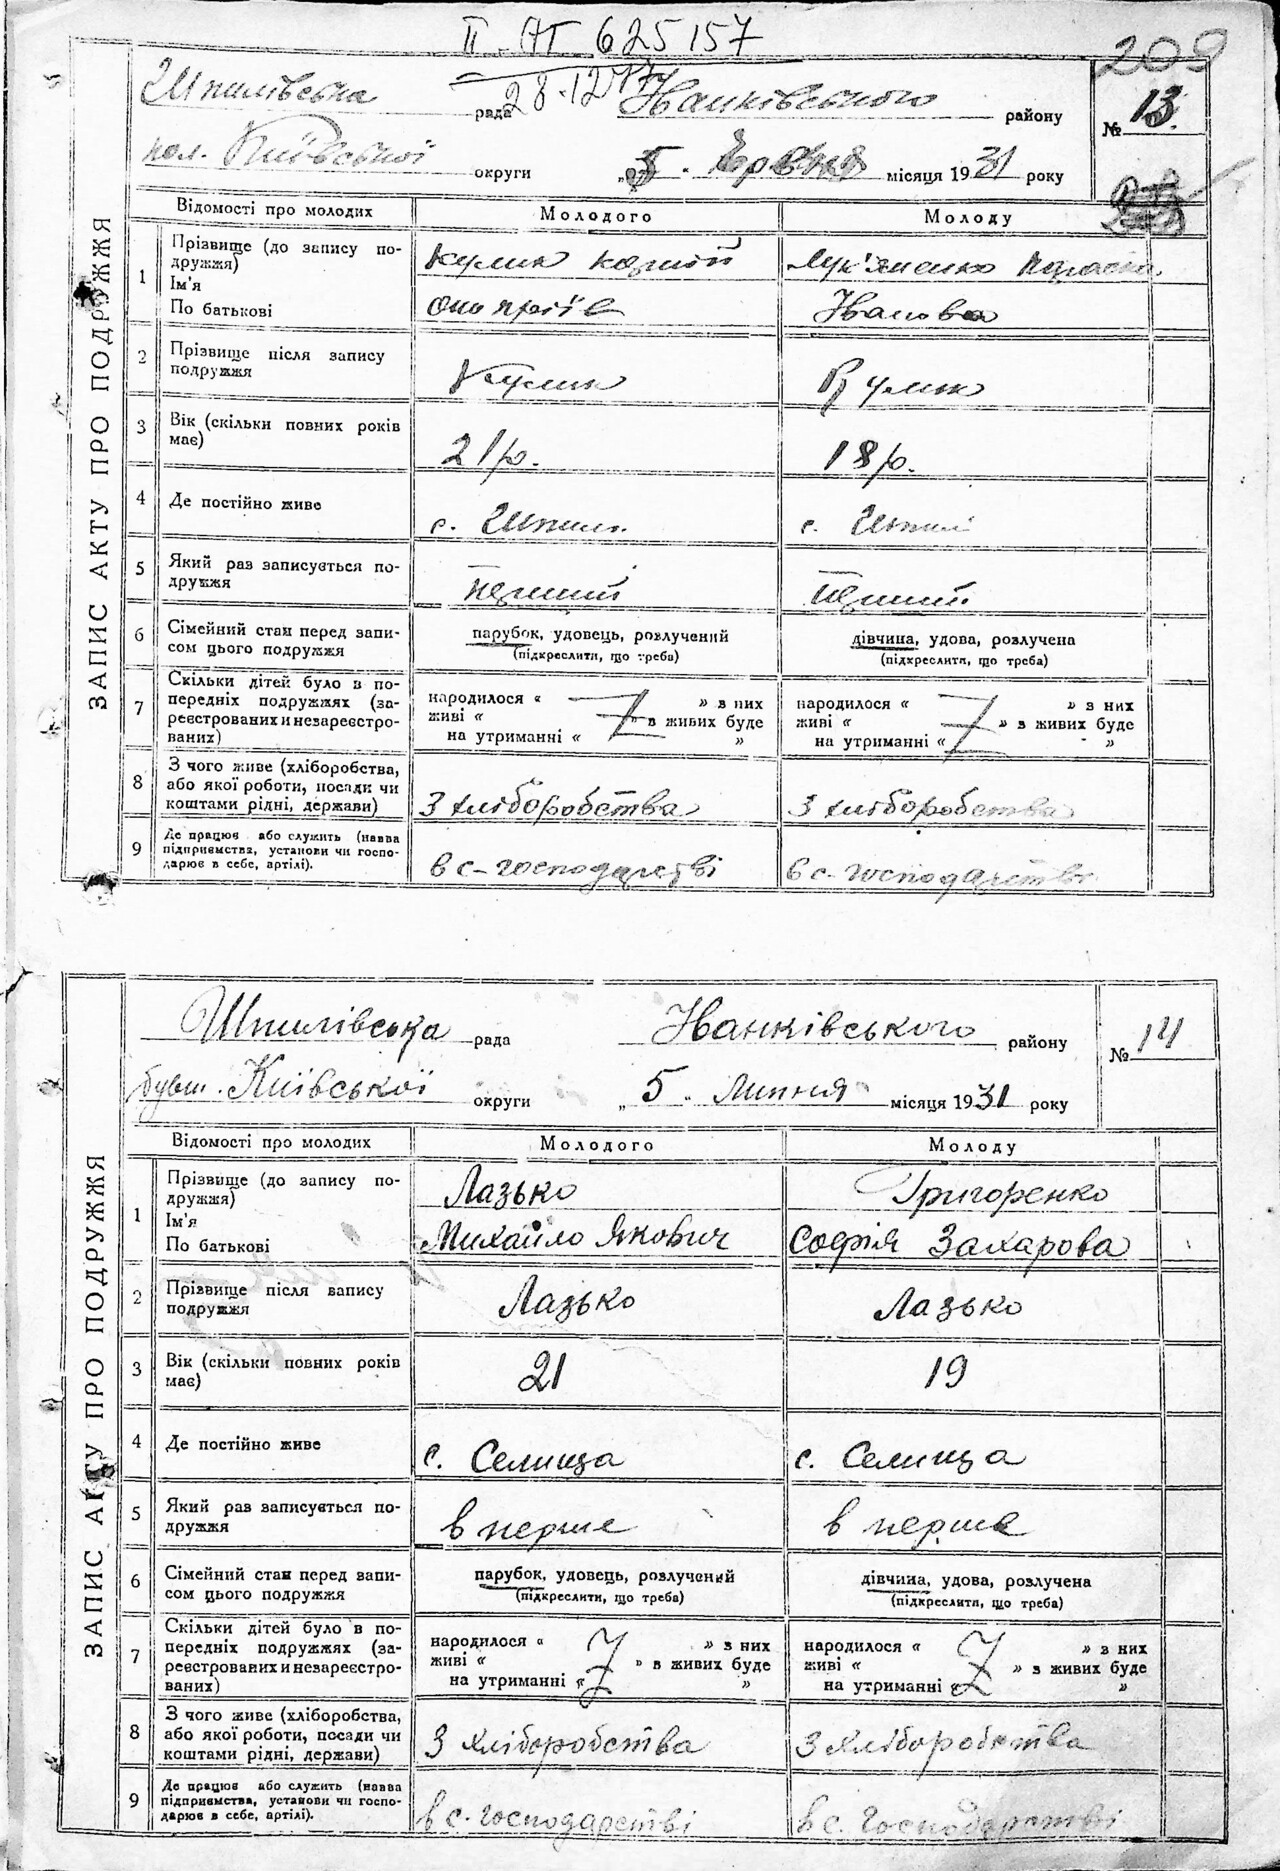 II-АГ 625157
28.12
209
Шпилівська рада Іванківського району № 13
кол. Київської округи „5“ місяця 1931 року
ЗАПИС АКТУ ПРО ПОДРУЖЖЯ
Відомості про молодих Молодого Молоду
1 Прізвище (до запису по-
дружжя)
Ім'я
По батькові
Кулик Корній Лук'яненко Параска
Оноприїв Іванова
2 Прізвище після запису
подружжя
Кулик Кулик
3 Вік (скільки повних років
має)
21р. 18р.
4 Де постійно живе с. Шпилі с. Шпилі
5 Який раз записується по-
дружжя
перший перший
6 Сімейний стан перед запи-
сом цього подружжя
парубок, удовець, розлучений дівчина, удова, розлучена
(підкреслити, що треба) (підкреслити, що треба)
7 Скільки дітей було в по-
передніх подружжях (за-
реєстрованих и незареєстро-
ваних)
народилося « » з них народилося « » з них
живі « » в живих буде живі « » в живих буде
на утриманні « » на утриманні « »
8 З чого живе (хліборобства,
або якої роботи, посади чи
коштами рідні, держави)
З хліборобства З хліборобства
9 Де працює або служить (назва
підприємства, установи чи госпо-
дарює в себе, артілі).
в с-господарстві в с-господарстві
Шпилівська рада Іванківського району № 14
бувш. Київської округи „5“ Липня місяця 1931 року
ЗАПИС АКТУ ПРО ПОДРУЖЖЯ
Відомості про молодих Молодого Молоду
1 Прізвище (до запису по-
дружжя)
Ім'я
По батькові
Лазько Григоренко
Михайло Якович Софія Захарова
2 Прізвище після запису
подружжя
Лазько Лазько
3 Вік (скільки повних років
має)
21 19
4 Де постійно живе с. Селища с. Селища
5 Який раз записується по-
дружжя
в перше в перше
6 Сімейний стан перед запи-
сом цього подружжя
парубок, удовець, розлучений дівчина, удова, розлучена
(підкреслити, що треба) (підкреслити, що треба)
7 Скільки дітей було в по-
передніх подружжях (за-
реєстрованих и незареєстро-
ваних)
народилося « » з них народилося « » з них
живі « » в живих буде живі « » з живих буде
на утриманні « » на утриманні « »
8 З чого живе (хліборобства,
або якої роботи, посади чи
коштами рідні, держави)
З хліборобства З хліборобства
9 Де працює або служить (назва
підприємства, установи чи госпо-
дарює в себе, артілі).
в с. господарстві в с. господарстві